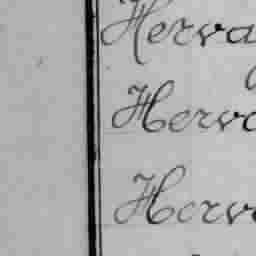 Herva
Herva
Herv